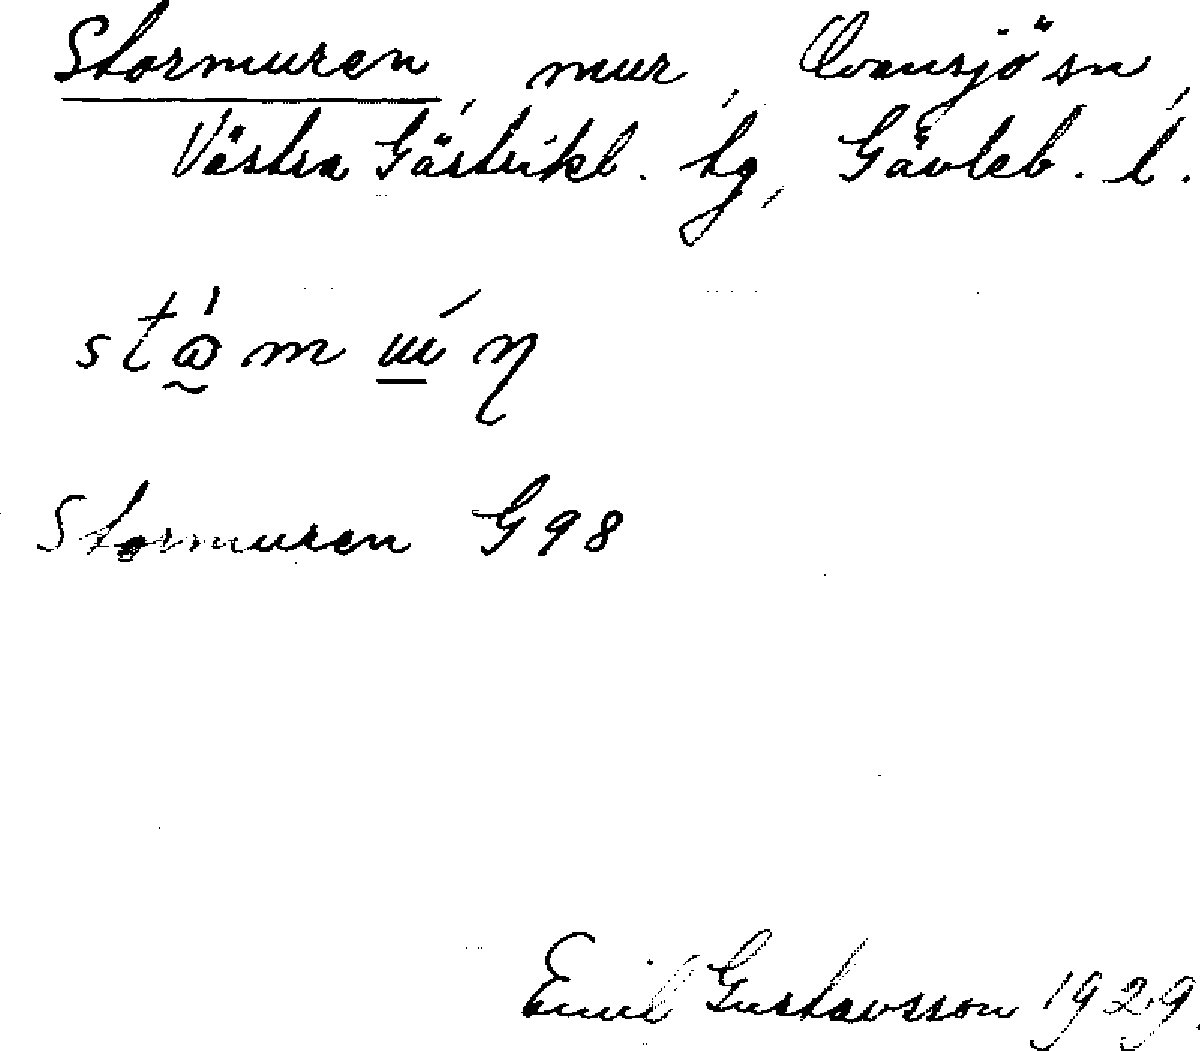 Stormuren, mur, Ovansjö sn,
Västra Gästrikl. hg, Gävleb. l.
Stormuren G 98
Emil Gustavsson 1929.